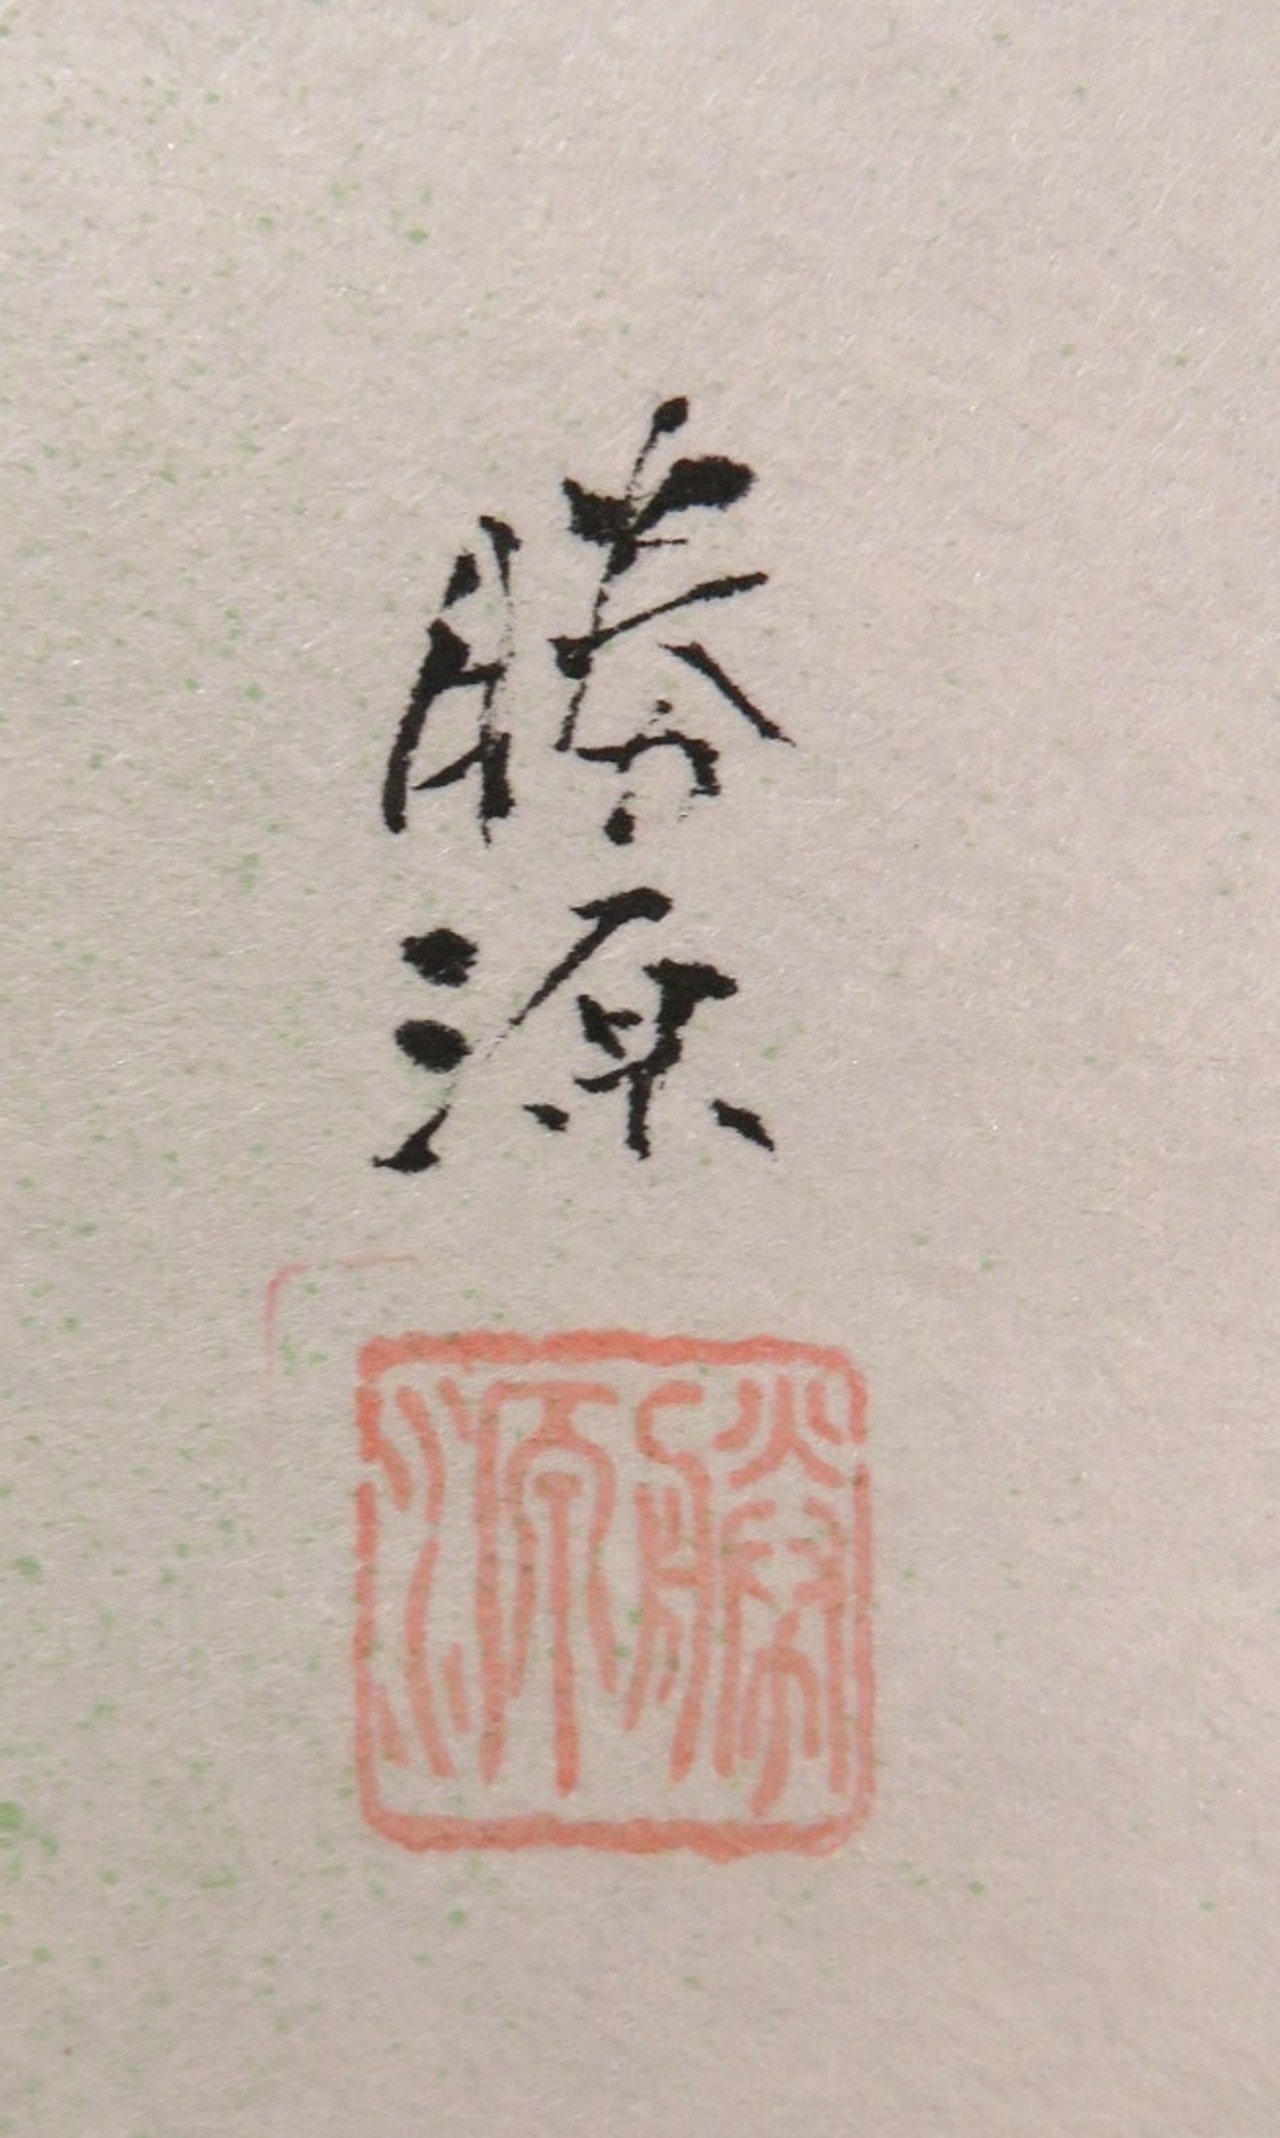 勝源
勝源